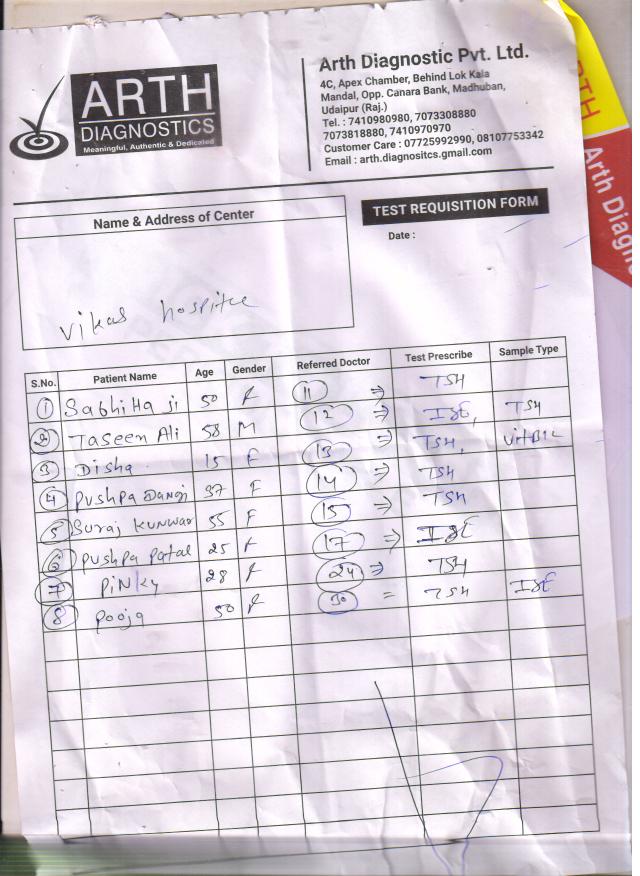 ARTH
DIAGNOSTICS
Meaningful, Authentic & Dedicated
Arth Diagnostic Pvt. Ltd.
4C, Apex Chamber, Behind Lok Kala
Mandal, Opp. Canara Bank, Madhuban,
Udaipur (Raj.)
Tel. : 7410980980, 7073308880
7073818880, 7410970970
Customer Care : 07725992990, 08107753342
Email : arth.diagnositcs.gmail.com
ARTH
Arth Diagn
Name & Address of Center
TEST REQUISITION FORM
Date :
Vikas hospital
S.No. Patient Name Age Gender Referred Doctor Test Prescribe Sample Type
1 Sabhita ji 50 F 11 ⇒ TSH
2 Taseen Ali 58 M 12 ⇒ IgE, TSH
3 Disha 15 F 13 ⇒ TSH, vitB12
4 Pushpa Dangi 37 F 14 ⇒ TSH
5 Suraj kunwar 55 F 15 ⇒ TSH
6 Pushpa Patal 25 F 17 ⇒ IgE
7 PiNky 28 F 24 ⇒ TSH
8 Pooja 50 F 30 = TSH IgE